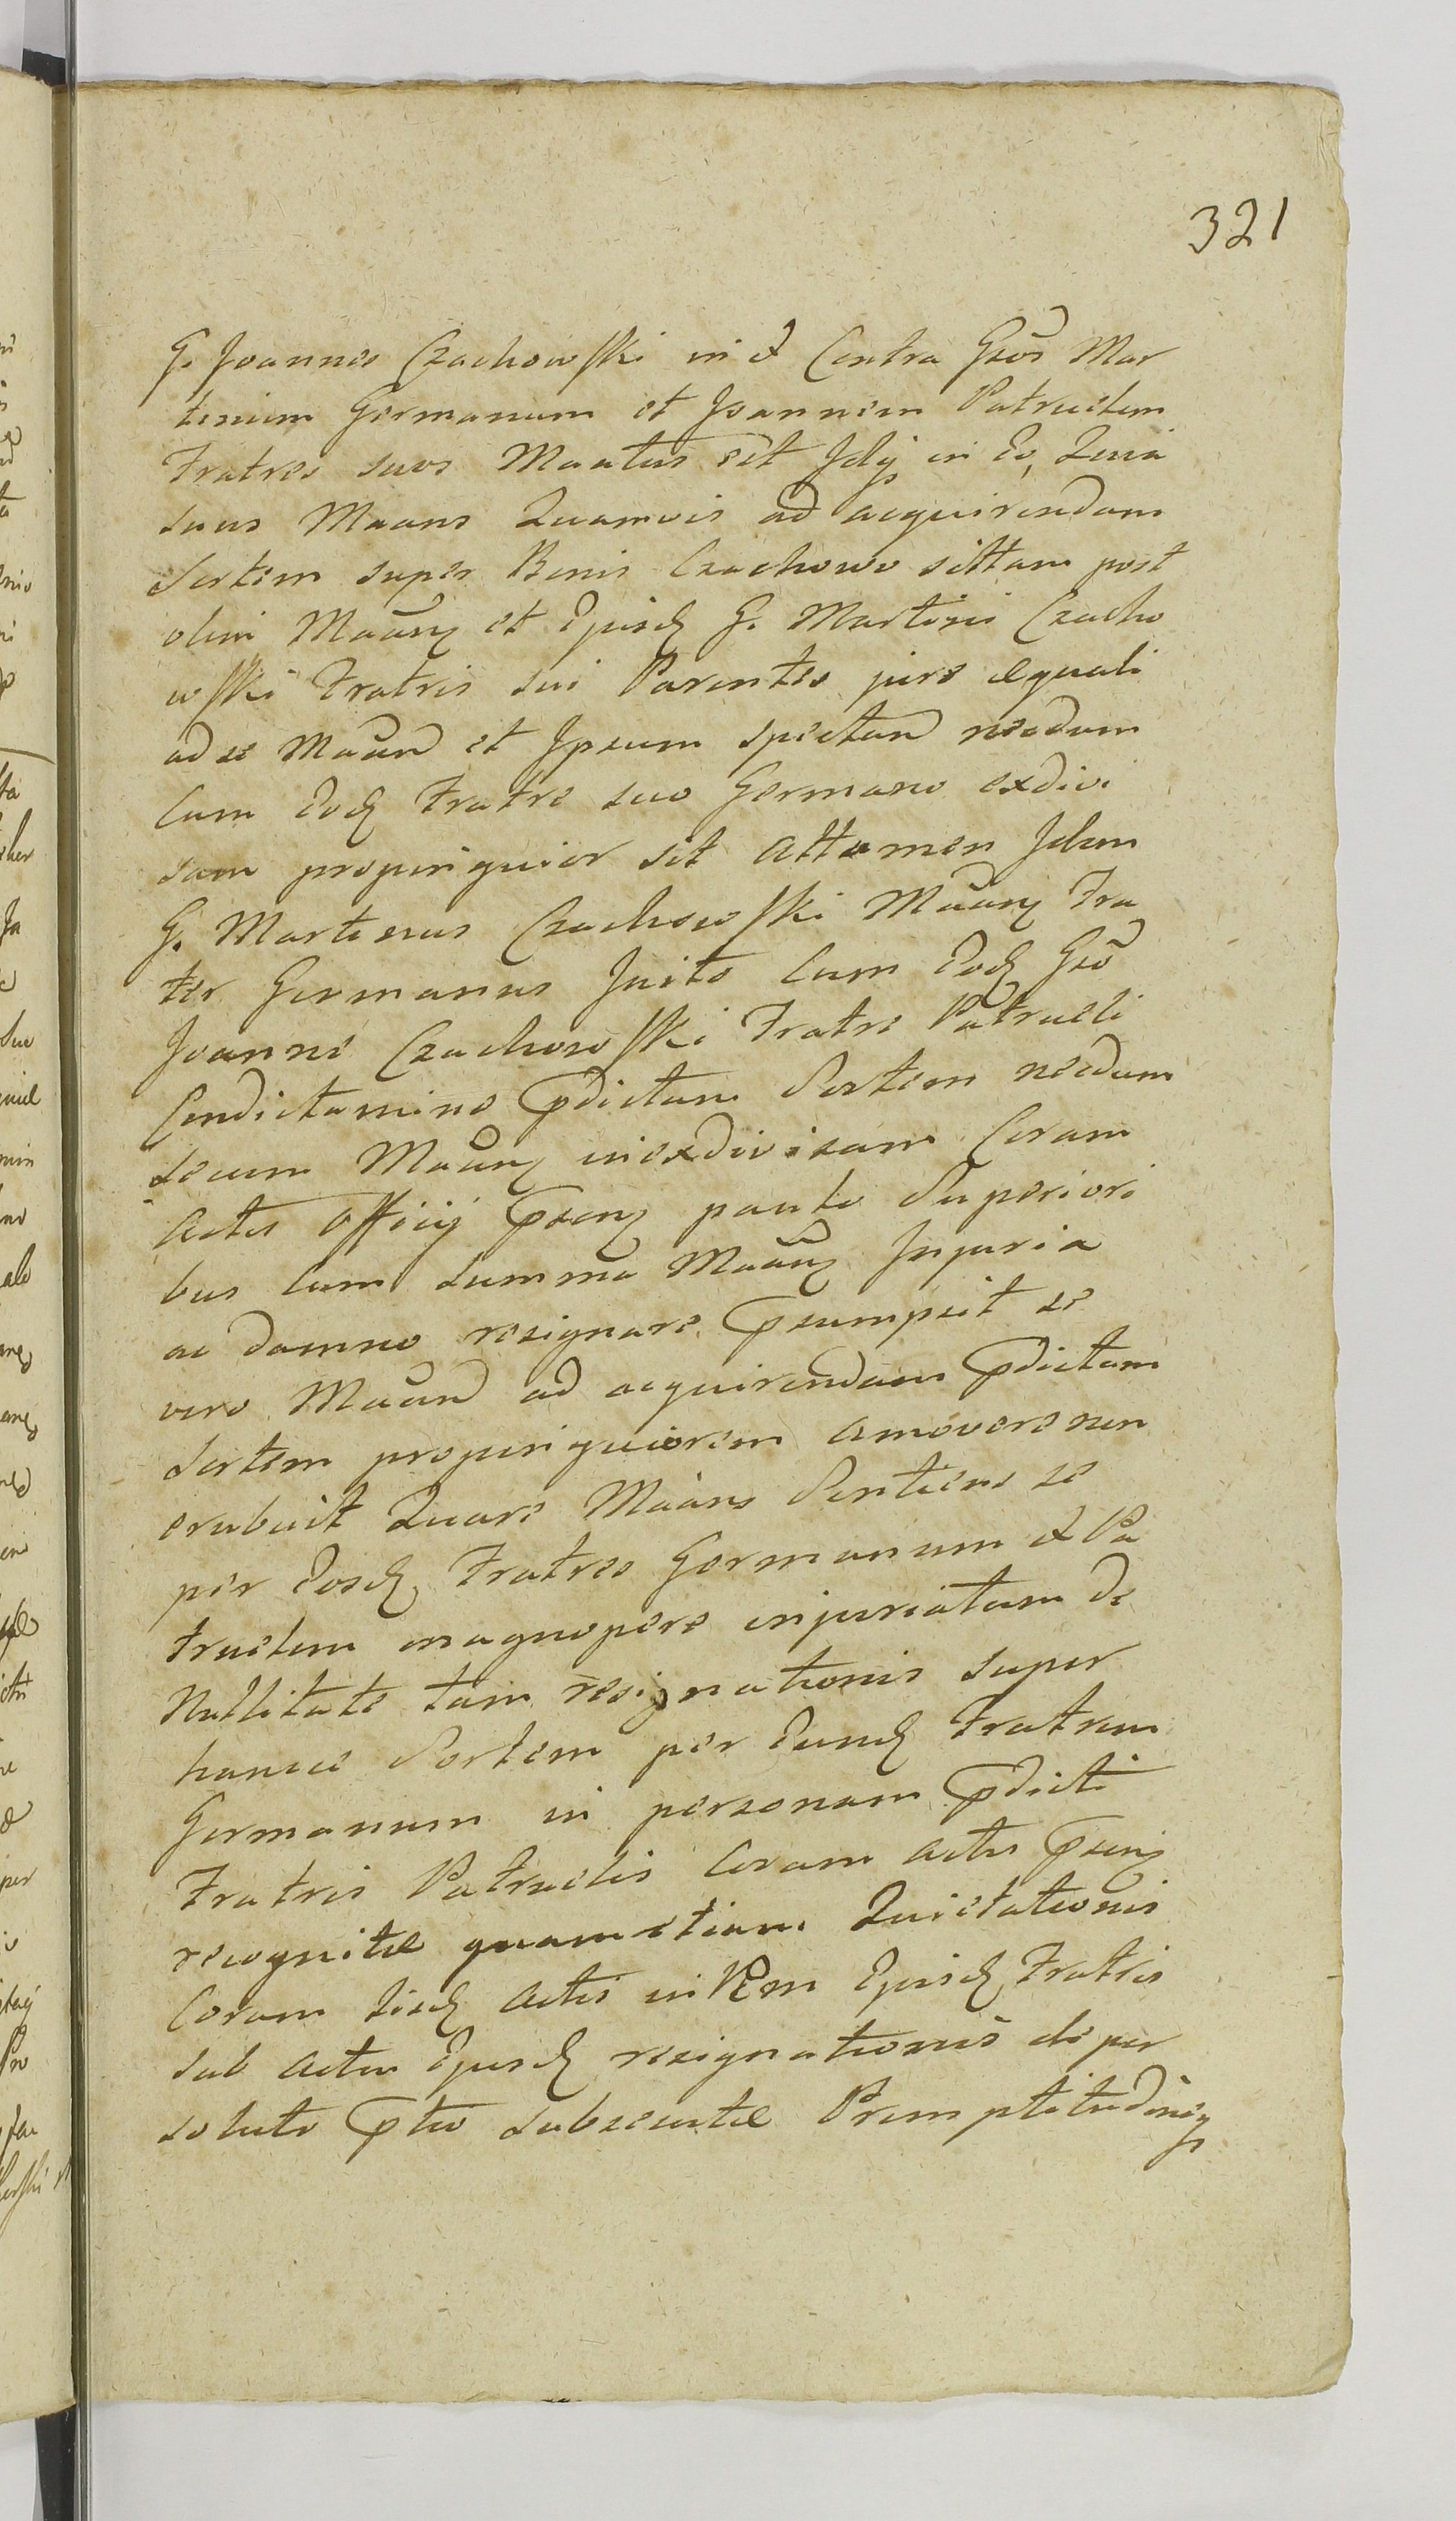 321
G. Joannes Czachowski in & Contra Gsōs Mar
tinum Germanum et Joannem Patruelem
Fratres suos Maatus est Idq in Eo, Quia
suus Maans Quamvis ad acquirendam
Sortem super Bonis Czachowo sittam post
olim Maanz et Ejusd G. Martini Czacho
wski Fratris sui Parentes jure equali
ad se Maand et Ipsum spectan needum
Cum Eod Fratre suo Germano exdivi
sam propinquior sit attamen Idem
G. Martinus Czachowski Maanz Fra
ter Germanus Inito Cum Eod Gsō
Joanne Czachowski Fratre Patrueli
Condictamine Pdictam Sortem necdum
secum Maanz inexdivisam Coram
Actis Officij Psenz paulo Superiori
bus Cum summa Maanz Injuria
ac damno resignare Psumpsit se
vero Maand ad acquirendam Pdictam
Sortem propinquiorem amovere non
erubuit Quare Maans Sentiens se
per Eosd Fratres Germanum & Pa
truelem magnopere injuriatum de
Nullitate tam resignationis super
hancce Sortem per Eund Fratrem
Germanum in personam Pdicti
Fratris Patruelis Coram actis Psenz
recognitæ quam etiam Quietationis
Coram iisd actis in Rem Ejusd Fratris
sub actu Ejusd resignationis de per
soluto Ptio subsecutæ Promptitudineq